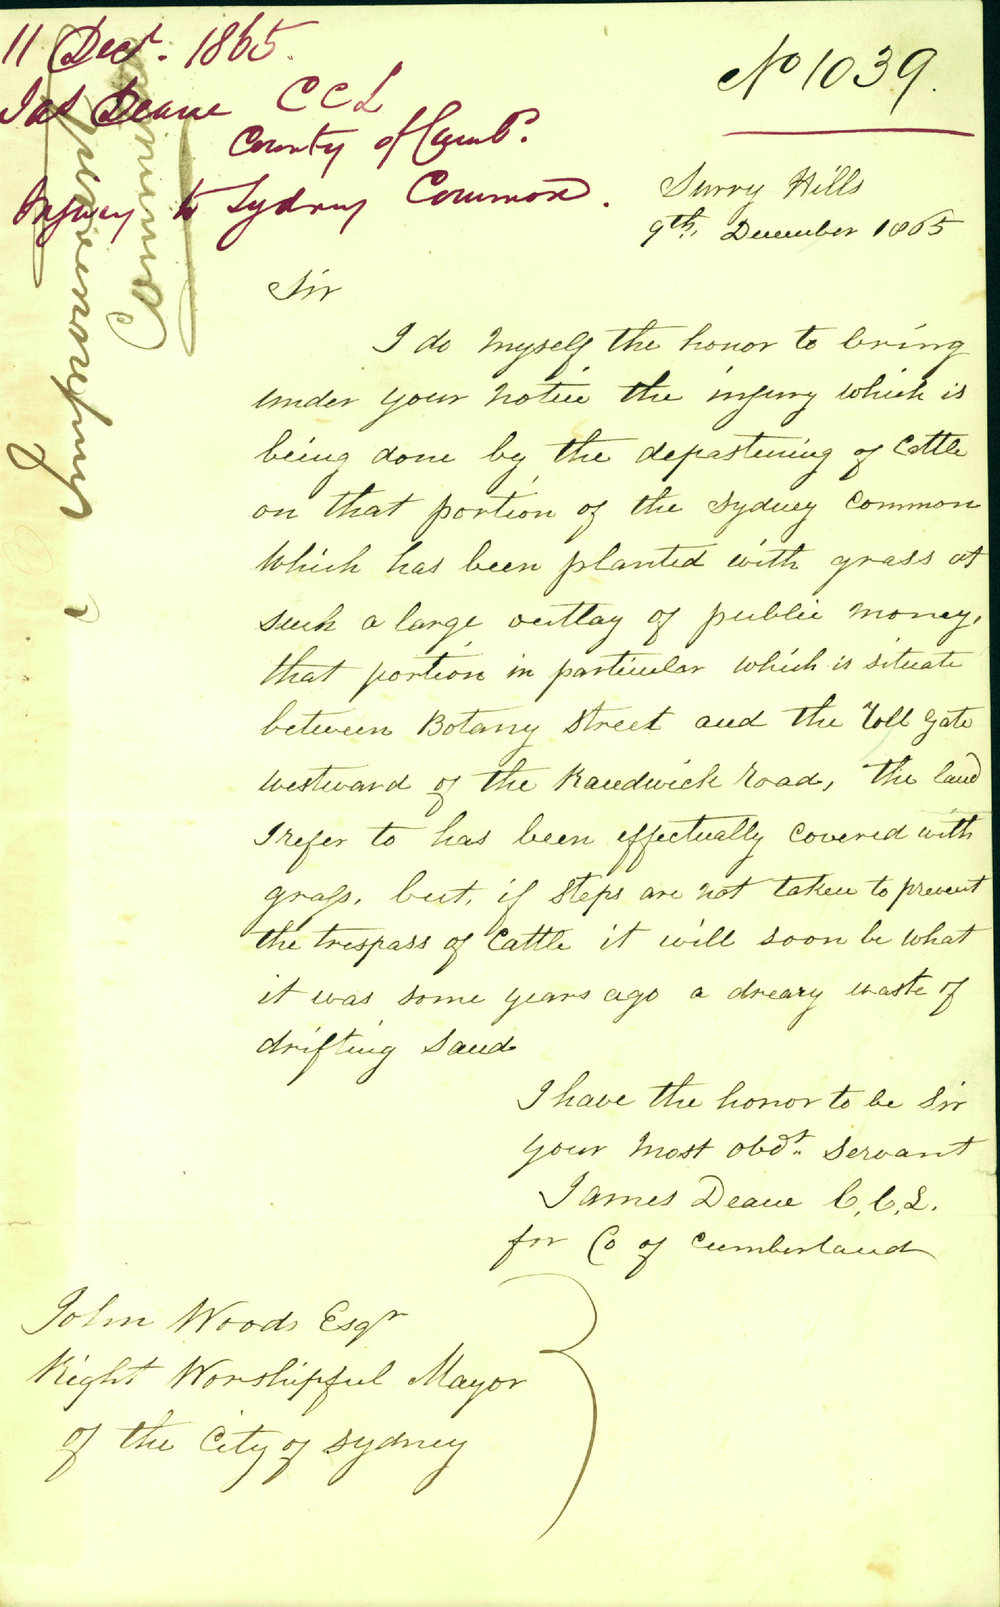 11 Decr. 1865.
Jas Deane C C L
County of Cumbd.
Injury to Sydney Common.
No 1039.
Surry Hills
9th. December 1865
Sir
I do myself the honor to bring
under your notice the injury which is
being done by the depasturing of Cattle
on that portion of the Sydney Common
which has been planted with grass at
such a large outlay of public money,
that portion in particular which is situate
between Botany Street and the Toll Gate
westward of the Randwick road, the land
I refer to has been effectually covered with
grass, but, if steps are not taken to prevent
the trespass of Cattle it will soon be what
it was some years ago a dreary waste of
drifting sand
I have the honor to be Sir
your most obdt. servant
James Deane C. C. L.
for Co of Cumberland
John Woods Esqr
Right Worshipful Mayor
of the City of Sydney
Improvement
Common